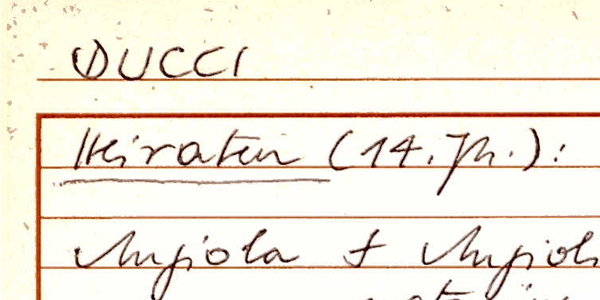 DUCCI
Heiraten (14. Jh.):
Angiola + Angiol